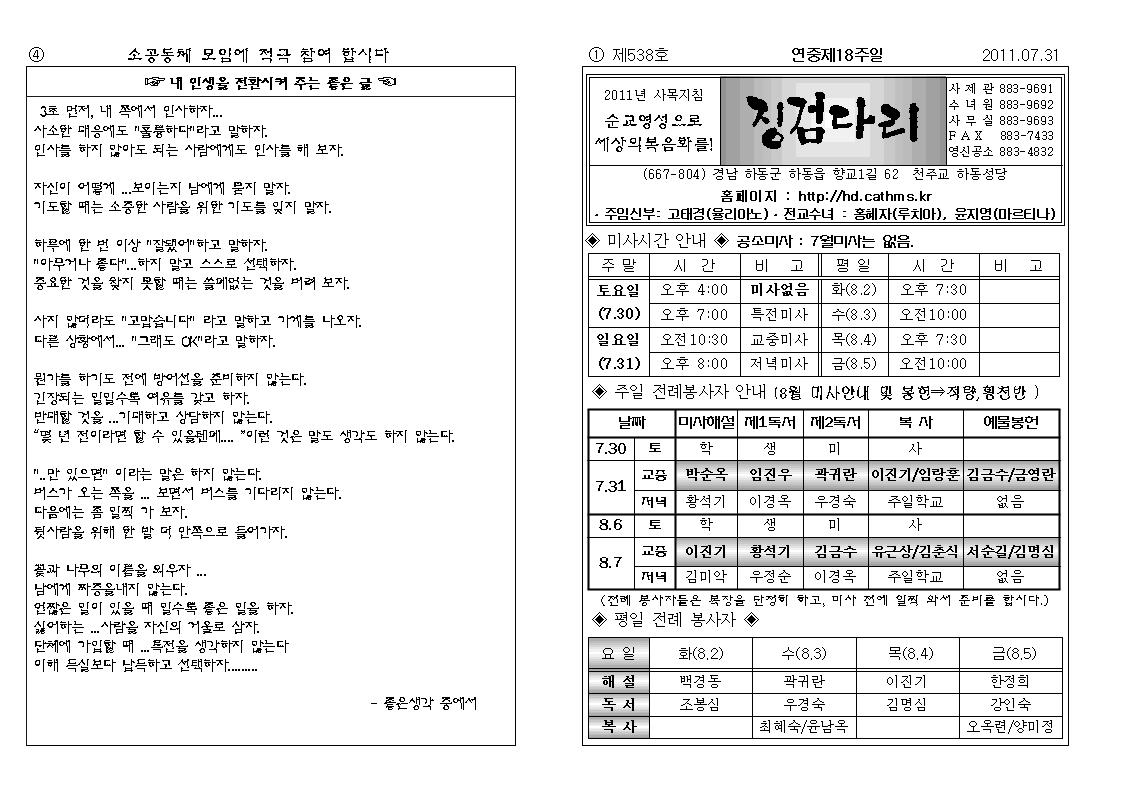 ④ 소공동체 모임에 적극 참여 합시다
☞ 내 인생을 전환시켜 주는 좋은 글 ☜
3초 먼저, 내 쪽에서 인사하자...
사소한 대응에도 "훌륭하다"라고 말하자.
인사를 하지 않아도 되는 사람에게도 인사를 해 보자.
자신이 어떻게 ...보이는지 남에게 묻지 말자.
기도할 때는 소중한 사람을 위한 기도를 잊지 말자.
하루에 한 번 이상 "잘됐어"하고 말하자.
"아무거나 좋다"...하지 말고 스스로 선택하자.
중요한 것을 찾지 못할 때는 쓸데없는 것을 버려 보자.
사지 않더라도 "고맙습니다" 라고 말하고 가게를 나오자.
다른 상황에서... "그래도 OK"라고 말하자.
뭔가를 하기도 전에 방어선을 준비하지 않는다.
긴장되는 일일수록 여유를 갖고 하자.
반대할 것을 ...기대하고 상담하지 않는다.
"몇 년 전이라면 할 수 있을텐데.... "이런 것은 말도 생각도 하지 않는다.
"..만 있으면" 이라는 말은 하지 않는다.
버스가 오는 쪽을 ... 보면서 버스를 기다리지 않는다.
다음에는 좀 일찍 가 보자.
뒷사람을 위해 한 발 더 안쪽으로 들어가자.
꽃과 나무의 이름을 외우자 ...
남에게 짜증을내지 않는다.
언짢은 일이 있을 때 일수록 좋은 일을 하자.
싫어하는 ...사람을 자신의 거울로 삼자.
단체에 가입할 때 ...특전을 생각하지 않는다
이해 득실보다 납득하고 선택하자.........
- 좋은생각 중에서
① 제538호 연중제18주일 2011.07.31
2011년 사목지침
순교영성으로
세상의복음화를!
징검다리
사 제 관 883-9691
수 녀 원 883-9692
사 무 실 883-9693
F A X 883-7433
영신공소 883-4832
(667-804) 경남 하동군 하동읍 향교1길 62 천주교 하동성당
홈페이지 : http://hd.cathms.kr
· 주임신부: 고태경(율리아노) · 전교수녀 : 홍혜자(루치아), 윤지영(마르티나)
◈ 미사시간 안내 ◈ 공소미사 : 7월미사는 없음.
주 말 시 간 비 고 평 일 시 간 비 고
토요일 오후 4:00 미사없음 화(8.2) 오후 7:30
(7.30) 오후 7:00 특전미사 수(8.3) 오전10:00
일요일 오전10:30 교중미사 목(8.4) 오후 7:30
(7.31) 오후 8:00 저녁미사 금(8.5) 오전10:00
◈ 주일 전례봉사자 안내 (8월 미사안내 및 봉헌⇒적량,횡천반 )
날짜 미사해설 제1독서 제2독서 복 사 예물봉헌
7.30 토 학 생 미 사
7.31 교중 박순옥 임진우 곽귀란 이진기/임랑훈 김금수/금영란
저녁 황석기 이경옥 우경숙 주일학교 없음
8.6 토 학 생 미 사
8.7 교중 이진기 황석기 김금수 유근상/김춘식 서순길/김명심
저녁 김미악 우정순 이경옥 주일학교 없음
(전례 봉사자들은 복장을 단정히 하고, 미사 전에 일찍 와서 준비를 합시다.)
◈ 평일 전례 봉사자 ◈
요 일 화(8.2) 수(8.3) 목(8.4) 금(8.5)
해 설 백경동 곽귀란 이진기 한정희
독 서 조봉심 우경숙 김명심 강인숙
복 사 최혜숙/윤남옥 오옥련/양미정